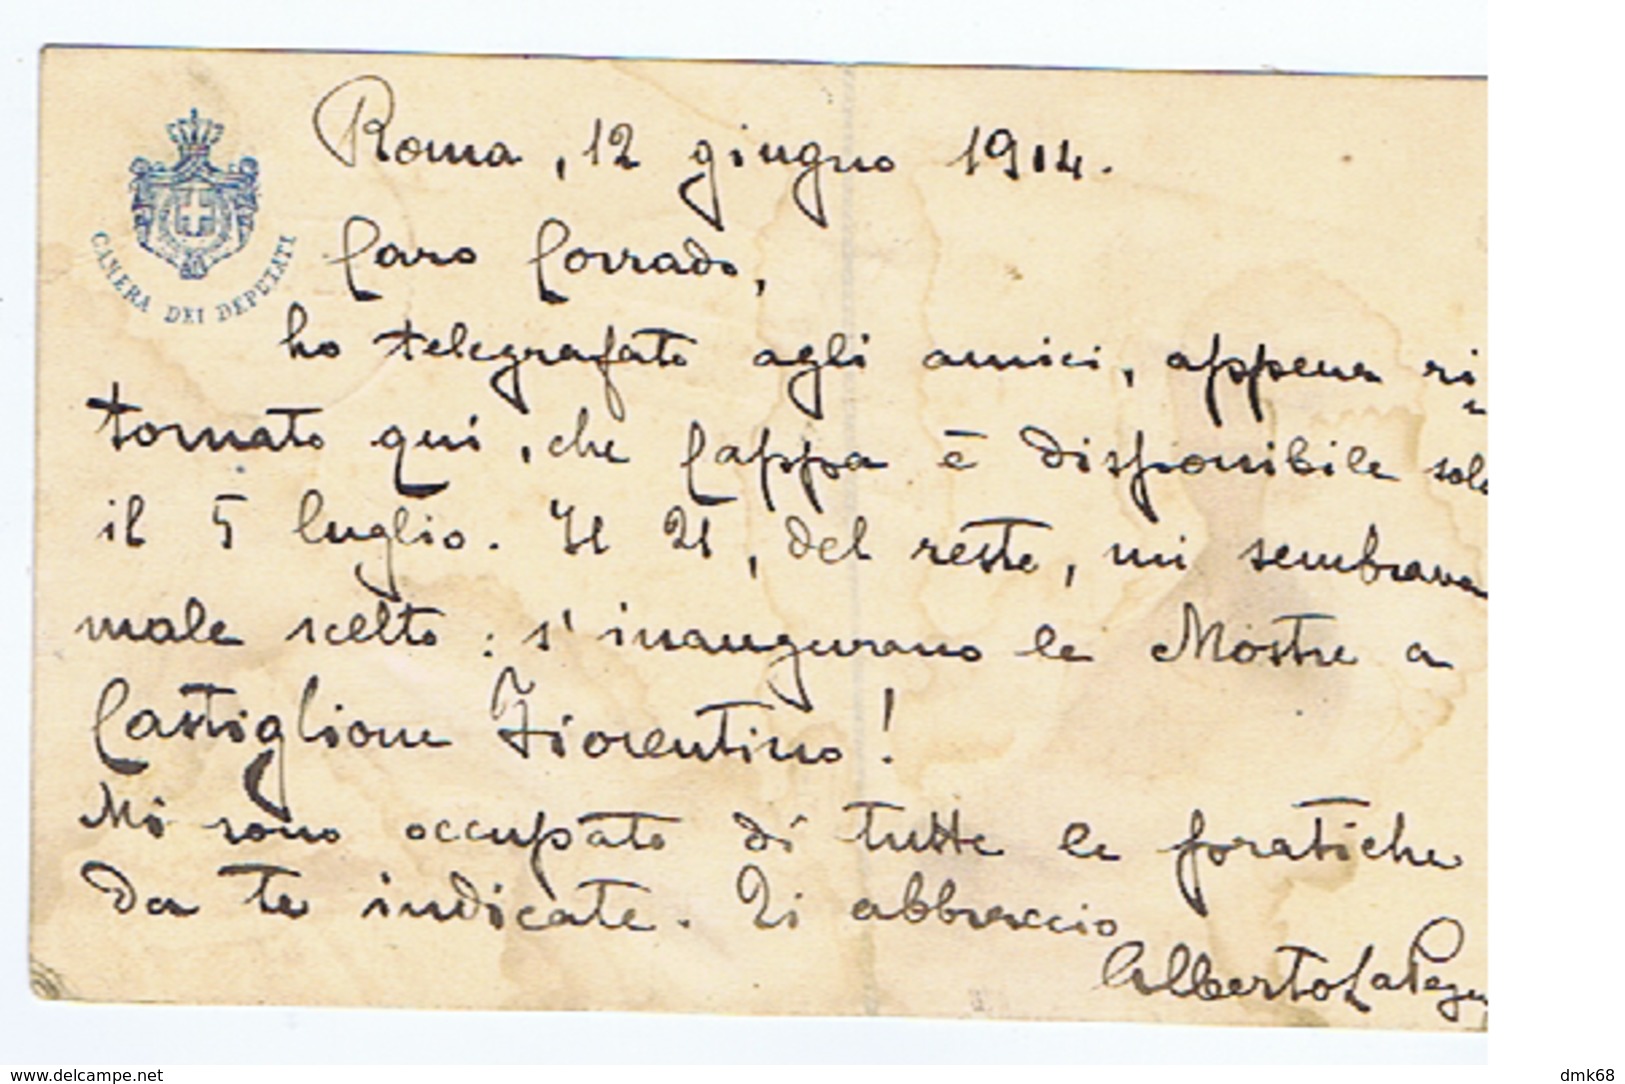 Roma, 12 giugno 1914.
CAMERA DEI DEPUTATI
Caro Corrado,
ho telegrafato agli amici, appena ri-
tornato qui, che Cappa è disponibile solo
il 5 luglio. Il 21, del resto, mi sembrava
male scelto: s'inaugurano le Mostre a
Castiglione Fiorentino!
Mi sono occupato di tutte le pratiche
da te indicate. Ti abbraccio
Alberto La Pegna
www.delcampe.net
dmk68